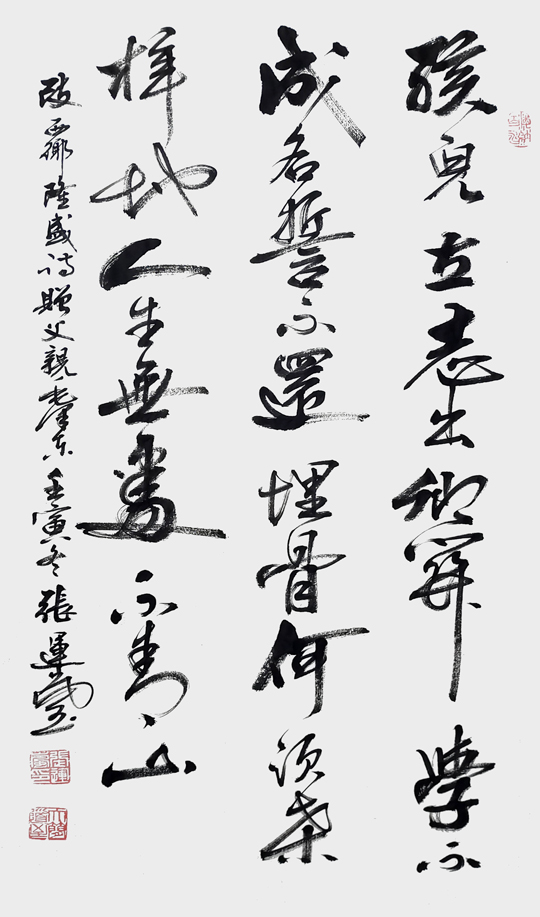 孩兒立志出鄉關學不
成名誓不還埋骨何須桑
梓地人生無處不青山
改西鄉隆盛詩贈父親毛澤東壬寅冬張運